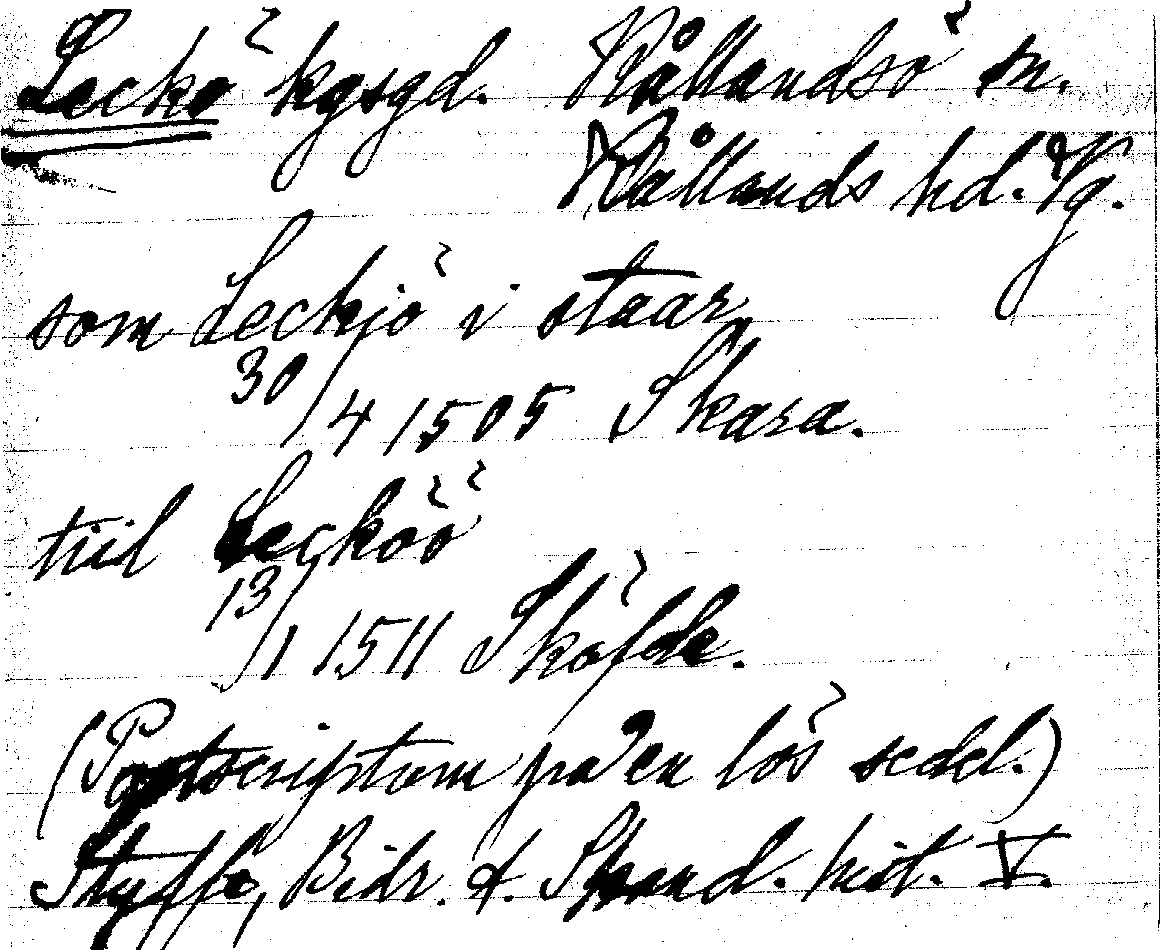 Leckö kgsgd. Kållandsö sn.
Kållands hd. Vg.
som Leckjö i staar
30/4 1505 Skara.
tiil Lecköö
13/1 1511 Sköfde.
(Postscriptum på en lös sedel.)
Styffe, Bidr. t. Skand. hist. V.